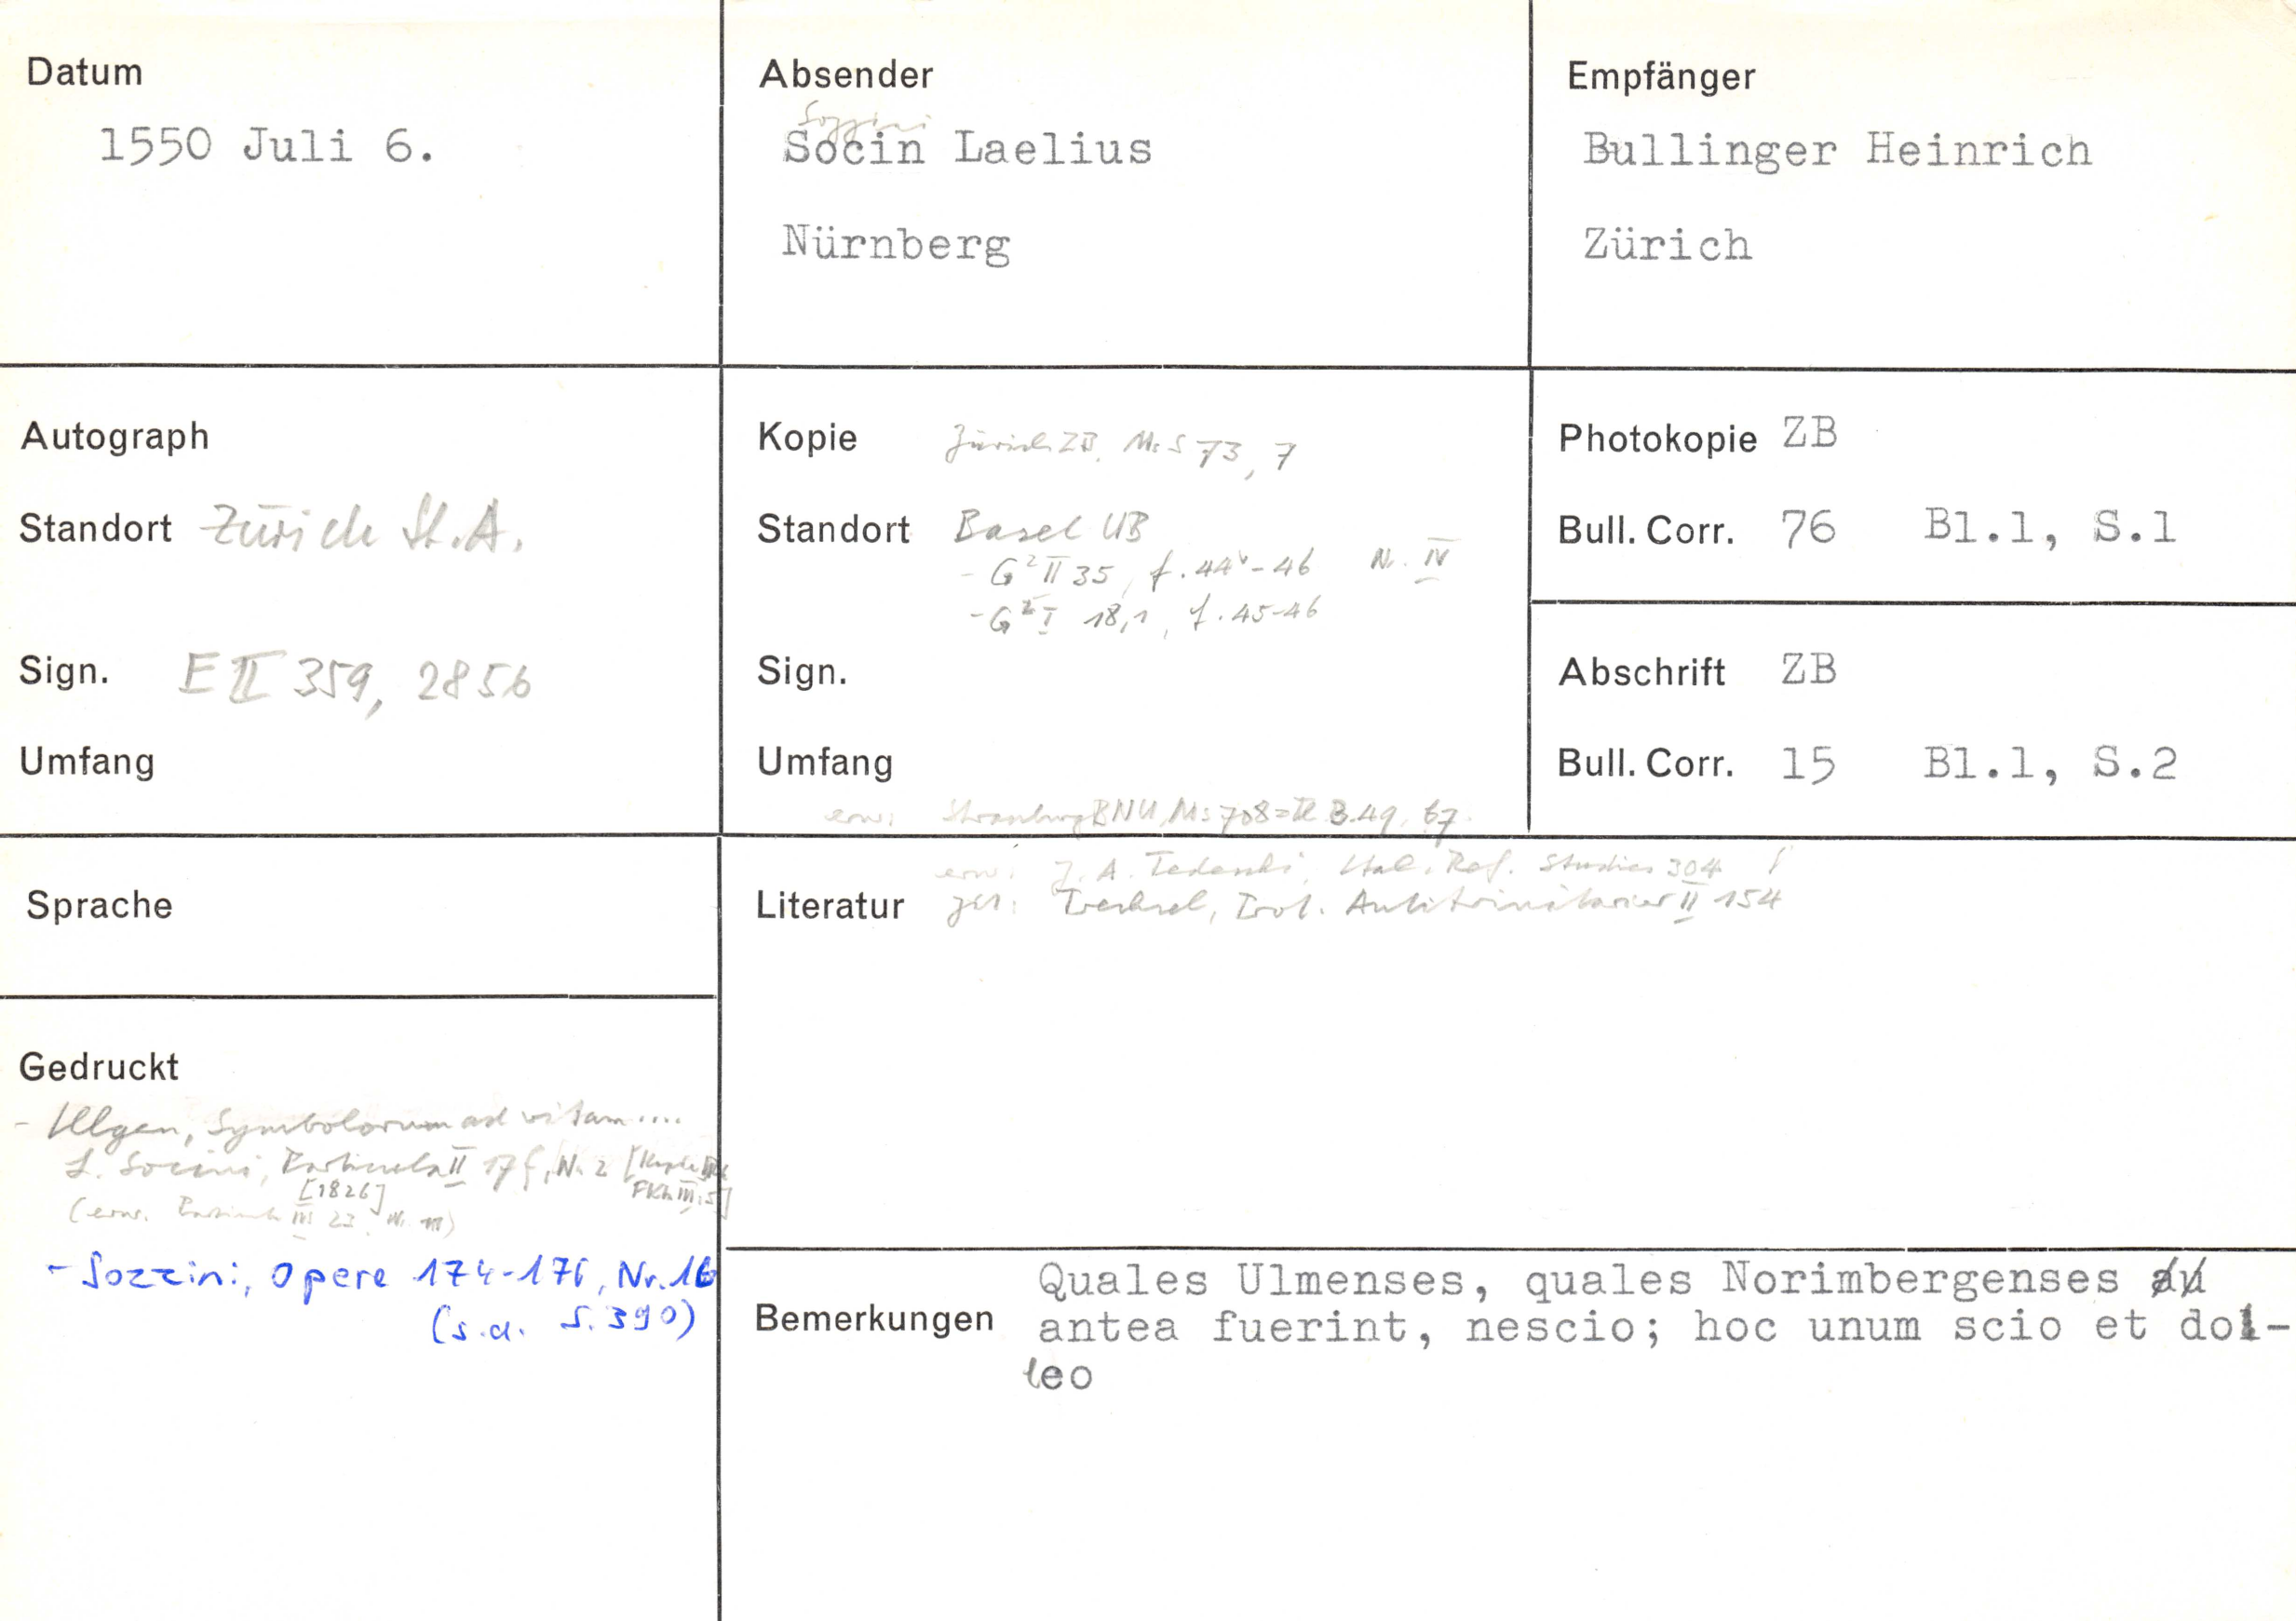 Datum
1550 Juli 6.
Absender
Sozzini
Socin Laelius
Nürnberg
Empfänger
Bullinger Heinrich
Zürich
Autograph
Standort Zürich St.A.
Sign. E II 359, 2856
Umfang
Kopie Zürich ZB, Ms S 73, 7
Standort Basel UB
- G² II 35, f. 44v-46 Nr. IV
- G² I 18,1, f. 45-46
Sign.
Umfang
erw: Strassburg BNU, Ms 708 = 49, 67
Photokopie ZB
Bull. Corr. 76 Bl.1, S.1
Abschrift ZB
Bull. Corr. 15 Bl.1, S.2
Sprache
erw: J. A. Tedeschi, Ital. Ref. Studies 304
Literatur Trechsel, Prot. Antitrinitarier II 154
Gedruckt
- Illgen, Symbolorum ad vitam ....
L. Socini, Particula II 17 f, Nr. 2
[1826]
(erw. Particula III 22
- Sozzini, Opere 174-176, Nr. 16
(s.a. S. 390)
Bemerkungen
Quales Ulmenses, quales Norimbergenses
antea fuerint, nescio; hoc unum scio et do-
leo